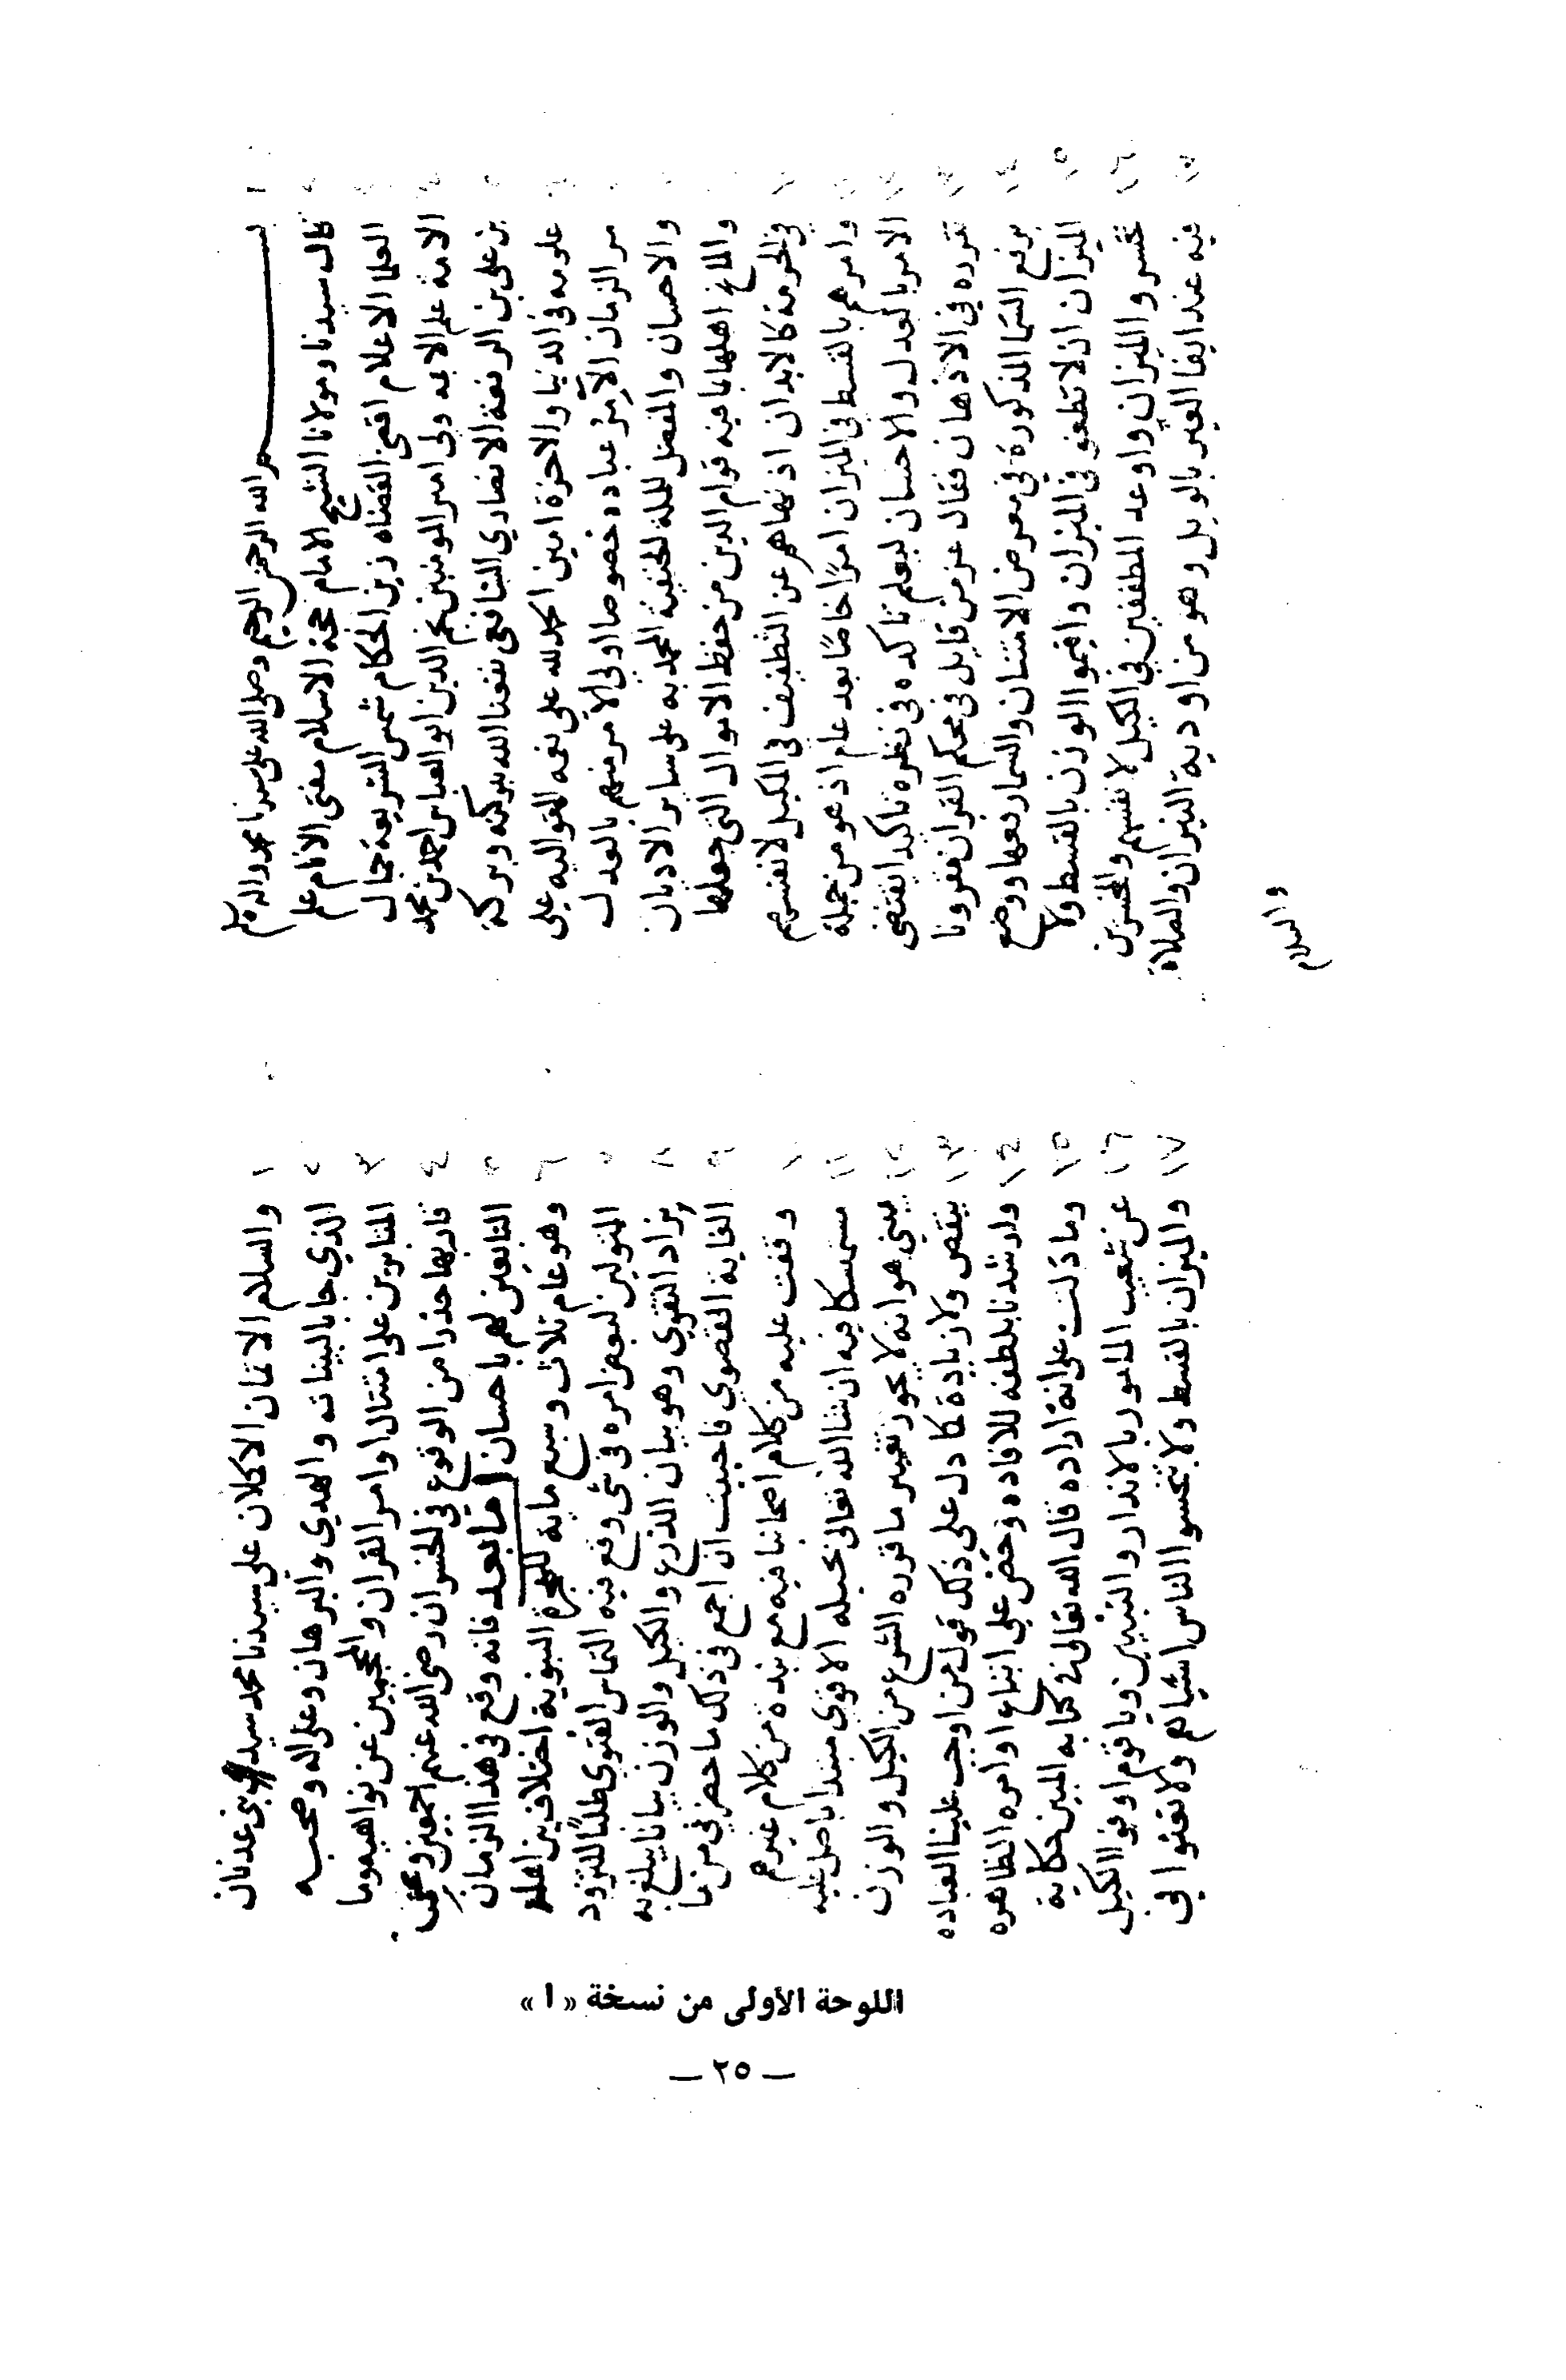 بسم الله الرحمن الرحيم وصلى الله على سيدنا محمد واله وسلم
قال سيدنا ومولانا الشيخ الامام حجة الاسلام مفتي الانام علم
العلما الاعلام اقضى القضاه زين الحكام شمس الشريعة جمال
الامة علم الايمه ولي امير المومنين نجم الدين ابو العباس احمد بن محمد
بن علي بن الرفعة الانصاري الشافعي نفعنا الله ببركته وبركة
علومه في الدنيا والاخرة امين الحمد لله على نعمه المتواليه على
مر الزمان الآمر عباده خصوصا اولي الامر منهم بالعدل
والاحسان والمفضل للملة الحنيفية المحمديه على ساير الاديان
والمانح اهلها بما فيه قوام الدين من حفظ الاموال التي جعلها
في الحرمة كالابدان اذ نهاهم عن التطفيف في المكيل لانفسهم
وامرهم بالقسط في الميزان امرًا خاصًا بعد عام اذ هو من جملة
الامر بالعدل والاحسان ليعلم تاكده في نظره تاكيدا يقتضي
تقرره في الاذهان فقال عز من قايل في محكم القران مقرونا
برفع السما المذكورة في معرض الامتنان والسما رفعها ووضع
الميزان ان لا تطغو في الميزان واقيموا الوزن بالقسط ولا
تخسرو الميزان واوعد المطففين في الكيل لانفسهم والمخسرين
فيه عند ايفا الغير بالويل وهو من اودية النيران والصلاة
والسلام
والسلام الاتمان الاكملان على سيدنا محمد سيد بني عدنان
الذي جا بالبينات والهدي والبرهان وعلى اله وصحبه
المثابرين على امتثال اوامر القران والمحجمين عن نواهيه وما
قاربها حذرا من الوقوع في الخسران رضي الله عنهم اجمعين وعن
التابعين لهم باحسان اما بعد فانه وقع في هذا الزمان
وهو عام ثلاث وسبع ماية للهجرة النبوية اختلاف بين اهله
المتولين لبعض امره في شي وقع فيه التماس الفتوي طلبًا للتزود
بزاد التقوي وهو بيان الذرع والكيل والوزن بيانا يبلغ به
الغاية القصوي فاحببت ان اجمع في ذلك ما حضرني من ما
وقفت عليه من كلام اصحابنا فيه مع نبذة من كلام غيرهم
مستمسكا فيه ان شا الله تعالى بحبله الاقوي مبتدا باصل عليه
يبني هو انه لا يجوز تغيير ما قرره الشرع من الكيل والوزن
بنقص ولا زيادة كما دل على ذلك قول من اوجب علينا العباده
وارشدنا بلطفه للافاده وحَضّ على اتباع اوامره الظاهره
وما دَلت على انه اراده قال الله تعالى في كتابه المبين حكاية
عن شعيب المامور بالانذار والتبيين ويا قوم اوفوا الكيل
والميزان بالقسط ولا تبخسوا الناس اشياهم ولا تعثوا في
اللوحة الأولى من نسخة «ا»
— ٢٥ —